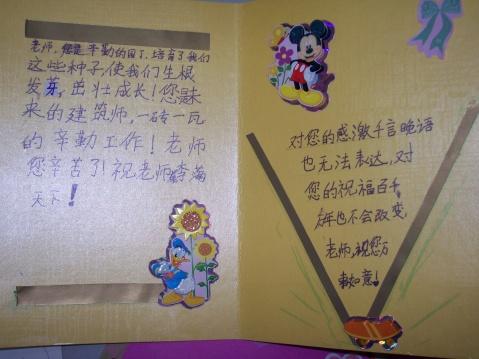 老师，您是辛勤的园丁，培育了我们
这些种子使我们生根
发芽，茁壮成长！您是未
来的建筑师，一砖一瓦
的辛勤工作！老师
您辛苦了！祝老师桃李满
天下！
对您的感激千言晚语
也无法表达，对
您的祝福百千
年也不会改变，
老师，祝您万
事如意！